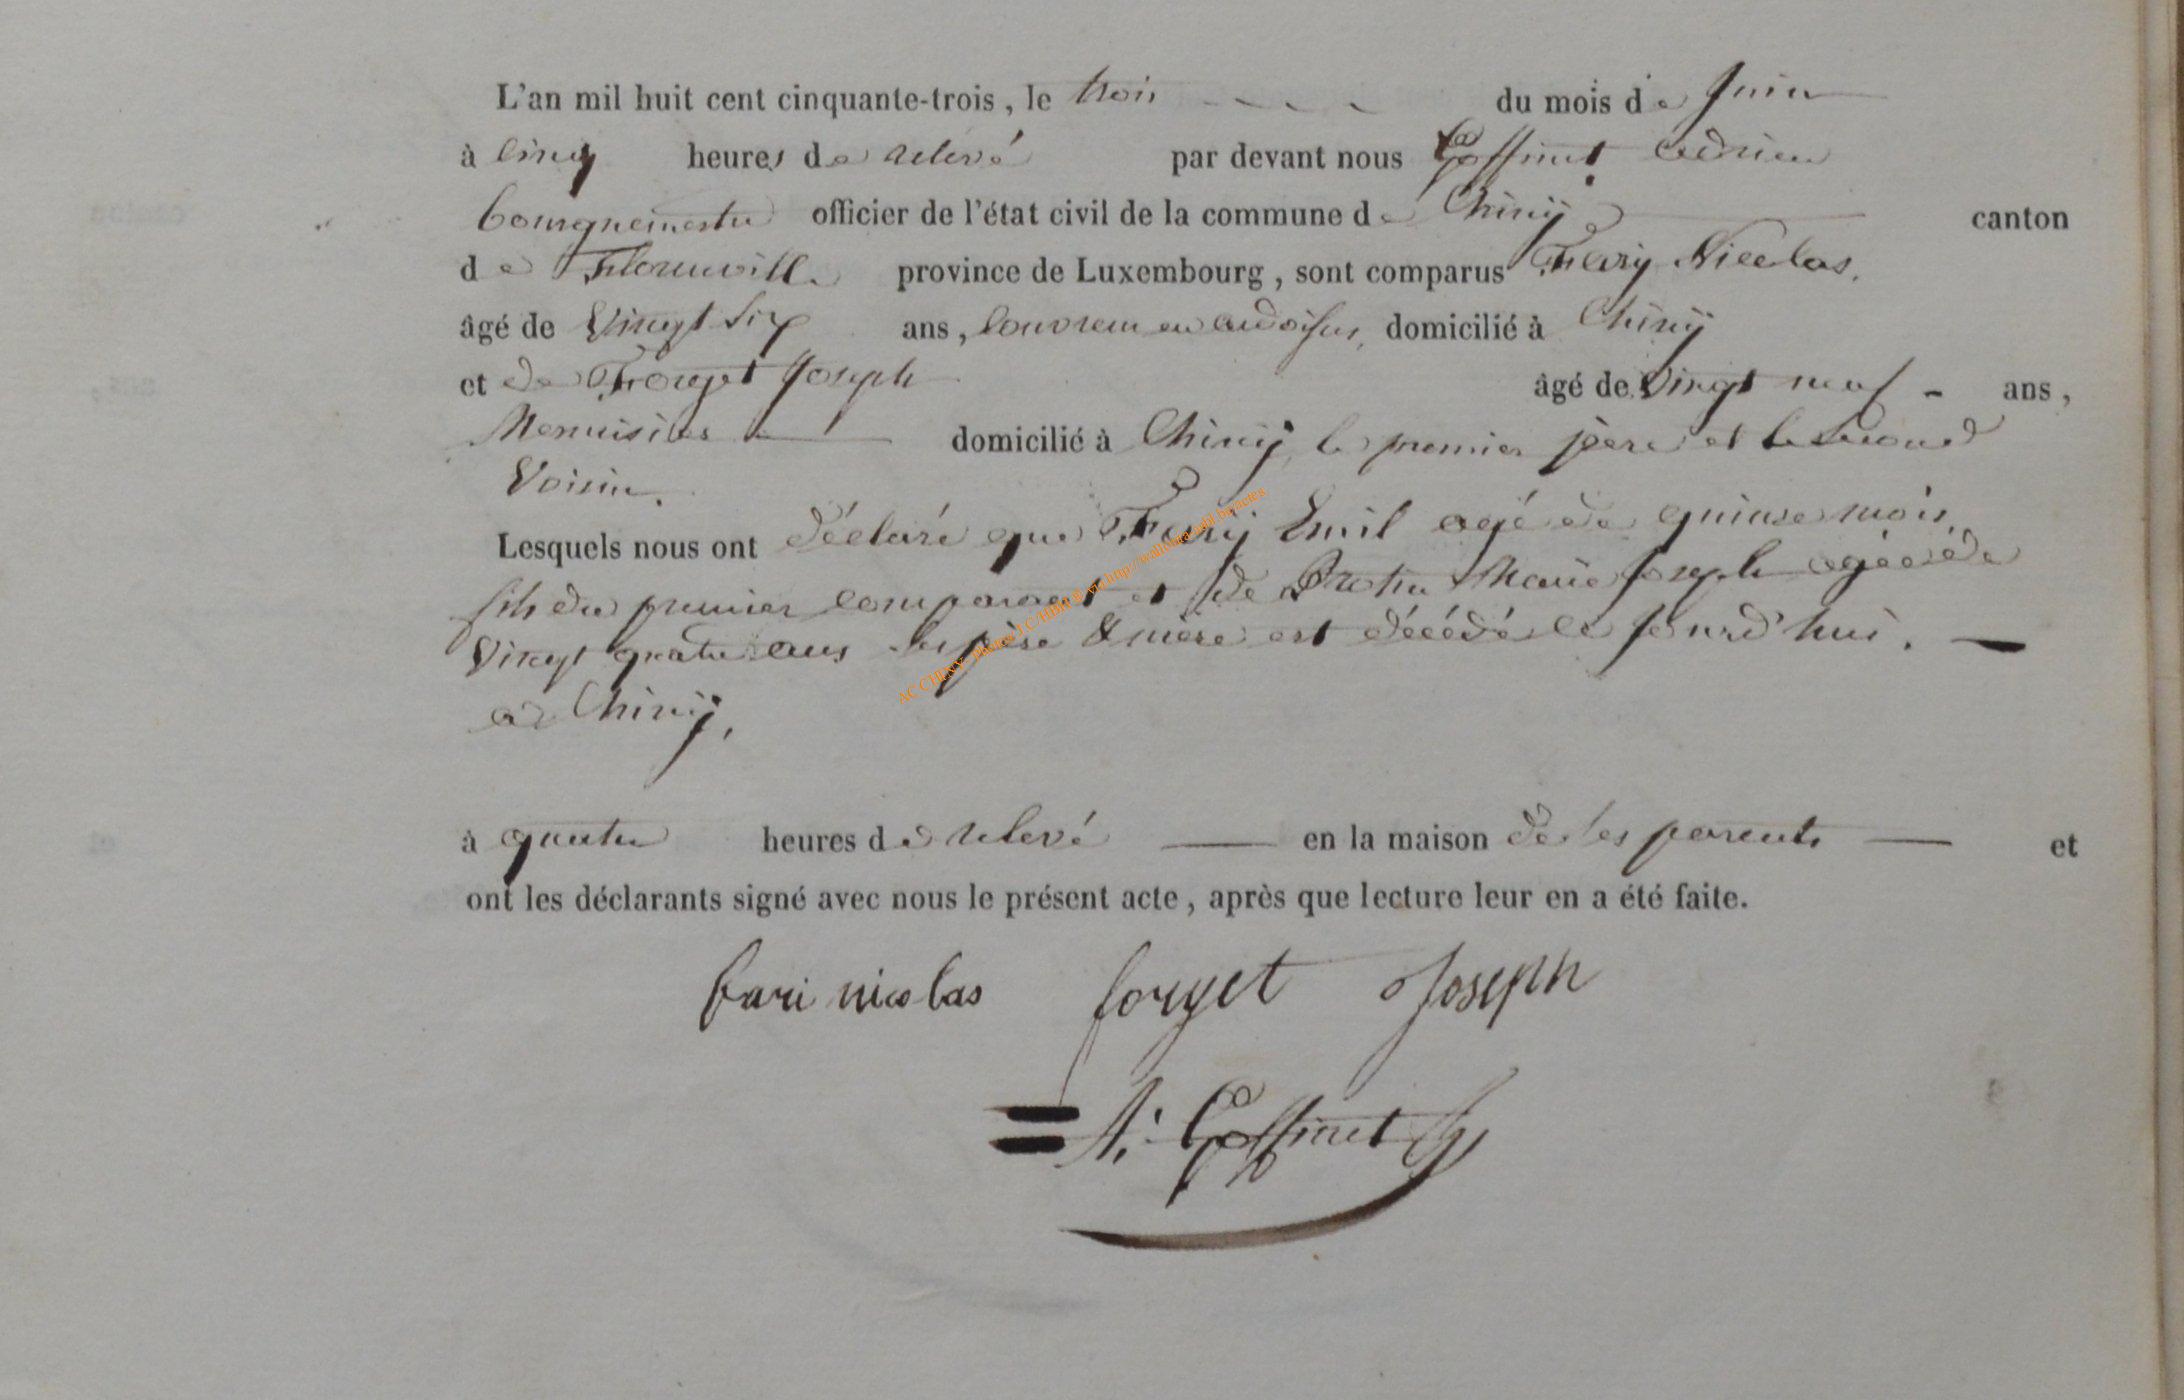 L'an mil huit cent cinquante-trois, le trois du mois de Juin
à cinq heures de relevé par devant nous Goffinet Adrien
bourguemestre officier de l'état civil de la commune de Chinÿ canton
de Florenville province de Luxembourg, sont comparus Fery Nicolas.
âgé de Vingt Six ans, Couvreur en ardoises, domicilié à Chinÿ
et de Forget Joseph âgé de Vingt neuf - ans,
Menuisier domicilié à Chinÿ, le premier père et le second
Voisin.
Lesquels nous ont déclaré que Emil agé de quinse mois,
fils du premier comparant et de Marie Joseph agée de
Vingt quatre ans ses père & mère est décédé ce jourd'hui.
à Chinÿ,
à quatre heures de relevé en la maison de ses parents et
ont les déclarants signé avec nous le présent acte, après que lecture leur en a été faite.
fari nicolas forget Joseph
A: Goffinet